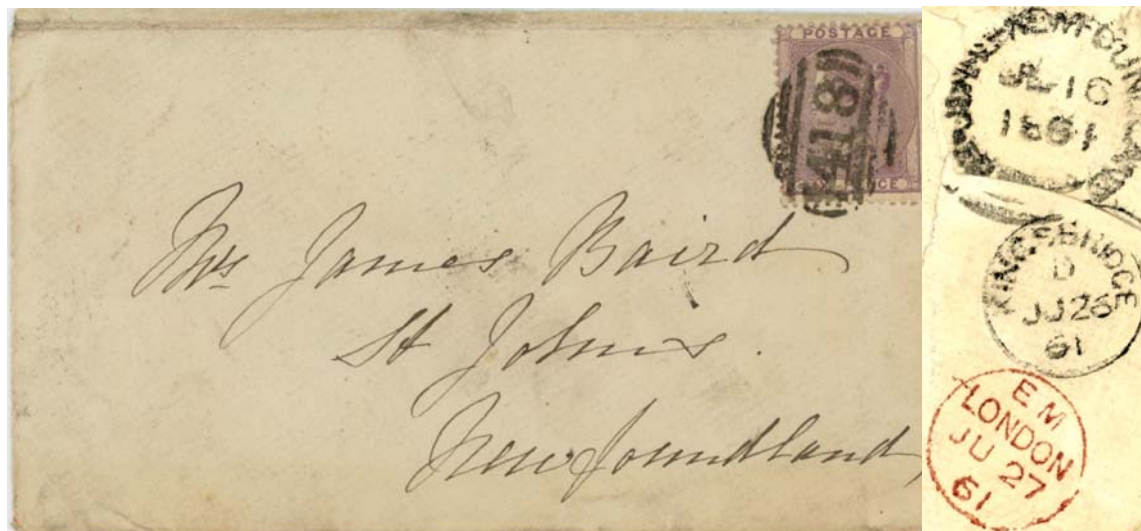 POSTAGE
418
SIX PENCE
Mrs James Baird
St Johns
Newfoundland
ST. JOHN'S NEWFOUNDLAND
JL 16
1861
KINGSBRIDGE
D
JU 26
61
E M
LONDON
JU 27
61